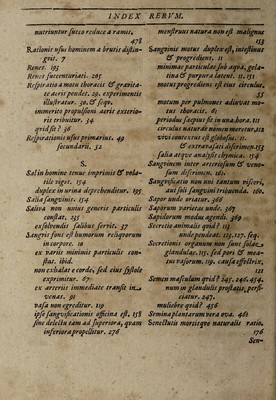 INDEX RERVM.
nutriuntur succo reduce a ramis,
478
Rationis usus hominem a brutis distin-
guit. 7
Renes. 193
Renes succenturiati. 205
Respiratio a motu thoracis & gravita-
te aeris pendet. 29. experimentis
illustratur. 30. & seqq.
immerito propulsioni aeris exterio-
ris tribuitur. 34
quid sit? 36
Respirationis usus primarius. 49
secundarii. 52
S.
Sal in homine tenue imprimis & vola-
tile viget. 154
duplex in urina deprehenditur. 195
Salia sanguinis. 154
Saliva non unius generis particulis
constat. 235
exsolvendis salibus servit. 37
Sanguis fons est humorum reliquorum
in corpore. 10
ex variis minimis particulis con-
stat. ibid.
non exhalat e corde, sed eius systole
exprimitur. 67
ex arteriis immediate transit in
venas. 91
vasa non egreditur. 119
ipse sanguificationis officina est. 158
sine delectu tam ad superiora, quam
inferiora propellitur. 276
menstruus natura non est malignus
133
Sanguinis motus duplex est, intestinus
& progrediens. 11
minimae particulae sub aqua, gela-
tina & purpura latent. 11. 151
motus progrediens est eius circulus,
55
motum per pulmones adiuvat mo-
tus thoracis. 61
periodus saepius fit in una hora. 111
circulus natura numeri meretur. 112
vivi contextus est globosus. 11.
& extravasati disiferim. 153
salia atque analysis chymica. 154
Sanguinem inter arteriosum & veno-
sum discrimen. 161.
Sanguificatio non uni tantum visceri,
aut soli sanguini tribuenda. 160.
Sapor unde oriatur. 366
Saporum varietas unde. 367
Sapidorum modus agendi. 369
Secretio animalis quid? 113
unde pendeat. 123. 127. seq.
Secretionis organum non sunt solae
glandulae. 115. sed pori & mea-
tus vasorum. 119. causa effectrix,
121
Semen masculum quid? 245. 246. 454.
num in glandulis prostatis, perfi-
ciatur. 247.
muliebre quid? 456
Semina plantarum vera ova. 461
Senectutis mortisque naturalis ratio.
176
Sen-